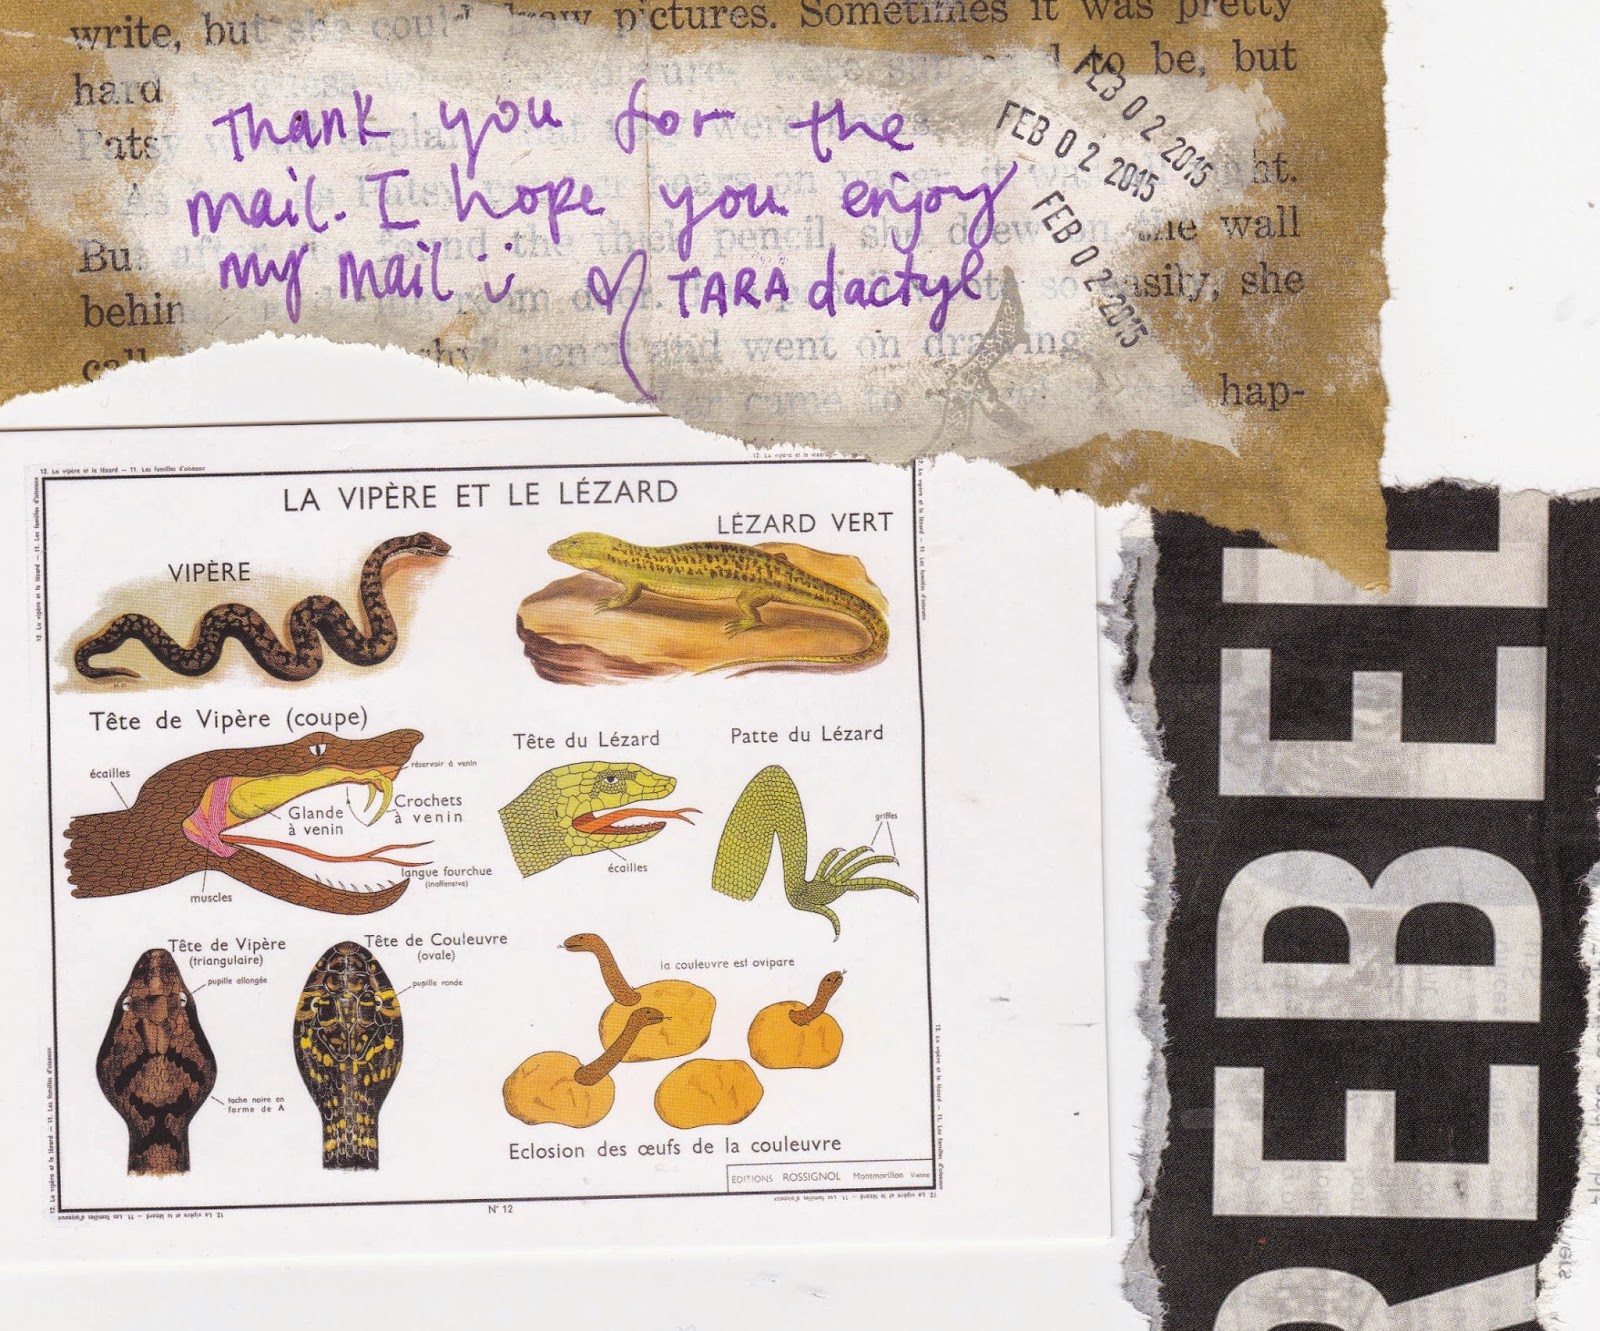 write, but she could draw pictures. Sometimes it was pretty
hard to guess pictures were supposed to be, but
Patsy were
As Patsy
But after she found the thick pencil, she drew on the wall
behind door. so easily, she
pencil and went on drawing
came to hap-
Thank you for the
mail. I hope you enjoy
my mail ♡ TARAdactyl
FEB 0 2 2015
FEB 0 2 2015
FEB 0 2 2015
12. La vipère et le lézard — 11. Les familles d'oiseaux
LA VIPÈRE ET LE LÉZARD
VIPÈRE
LÉZARD VERT
Tête de Vipère (coupe)
écailles
réservoir à venin
Glande
à venin
Crochets
à venin
langue fourchue
(inoffensive)
muscles
Tête du Lézard
écailles
Patte du Lézard
griffes
Tête de Vipère
(triangulaire)
pupille allongée
tache noire en
forme de Λ
Tête de Couleuvre
(ovale)
pupille ronde
la couleuvre est ovipare
Eclosion des œufs de la couleuvre
EDITIONS ROSSIGNOL Montmorillon Vienne
N° 12
REBEL